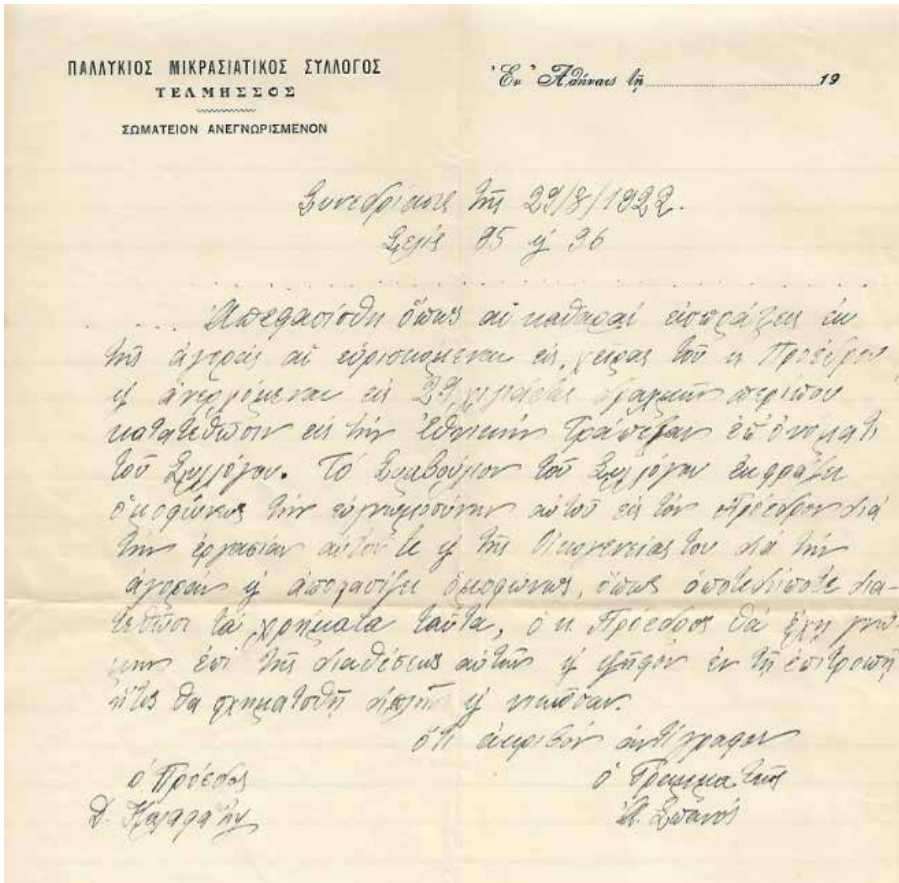 ΠΑΛΛΥΚΙΟΣ ΜΙΚΡΑΣΙΑΤΙΚΟΣ ΣΥΛΛΟΓΟΣ
ΤΕΛΜΗΣΣΟΣ
ΣΩΜΑΤΕΙΟΝ ΑΝΕΓΝΩΡΙΣΜΕΝΟΝ
Ἐν Ἀθήναις τῇ 19
Συνεδρίασις τῆς 29/8/1922.
Σελὶς 95 & 96
Ἀπεφασίσθη ὅπως αἱ καθαραὶ εἰσπράξεις ἐκ
τῆς ἀγορᾶς αἱ εὑρισκόμεναι εἰς χεῖρας τοῦ κ Προέδρου
& ἀνερχόμεναι εἰς 29 χιλιάδας δραχμῶν περίπου
κατατεθῶσιν εἰς τὴν Ἐθνικὴν Τράπεζαν ἐπ' ὀνόματι
τοῦ Συλλόγου. Τὸ Συμβούλιον τοῦ Συλλόγου ἐκφράζει
ὁμοφώνως τὴν εὐγνωμοσύνην αὐτοῦ εἰς τὸν Πρόεδρον διὰ
τὴν ἐργασίαν αὐτοῦ τε & τῆς Οἰκογενείας του διὰ τὴν
ἀγορὰν & ἀποφασίζει ὁμοφώνως, ὅπως ὁποτεδήποτε δια-
τεθῶσι τὰ χρήματα ταῦτα, ὁ κ Πρόεδρος θὰ ἔχῃ γνώ-
μην ἐπὶ τῆς διαθέσεως αὐτῶν & ψῆφον ἐν τῇ ἐπιτροπῇ
ἥτις θὰ σχηματισθῇ &
ὅτι ἀκριβὲς ἀντίγραφον
ὁ Πρόεδος
Δ.
ὁ Γραμματεὺς
Α. Σπανός